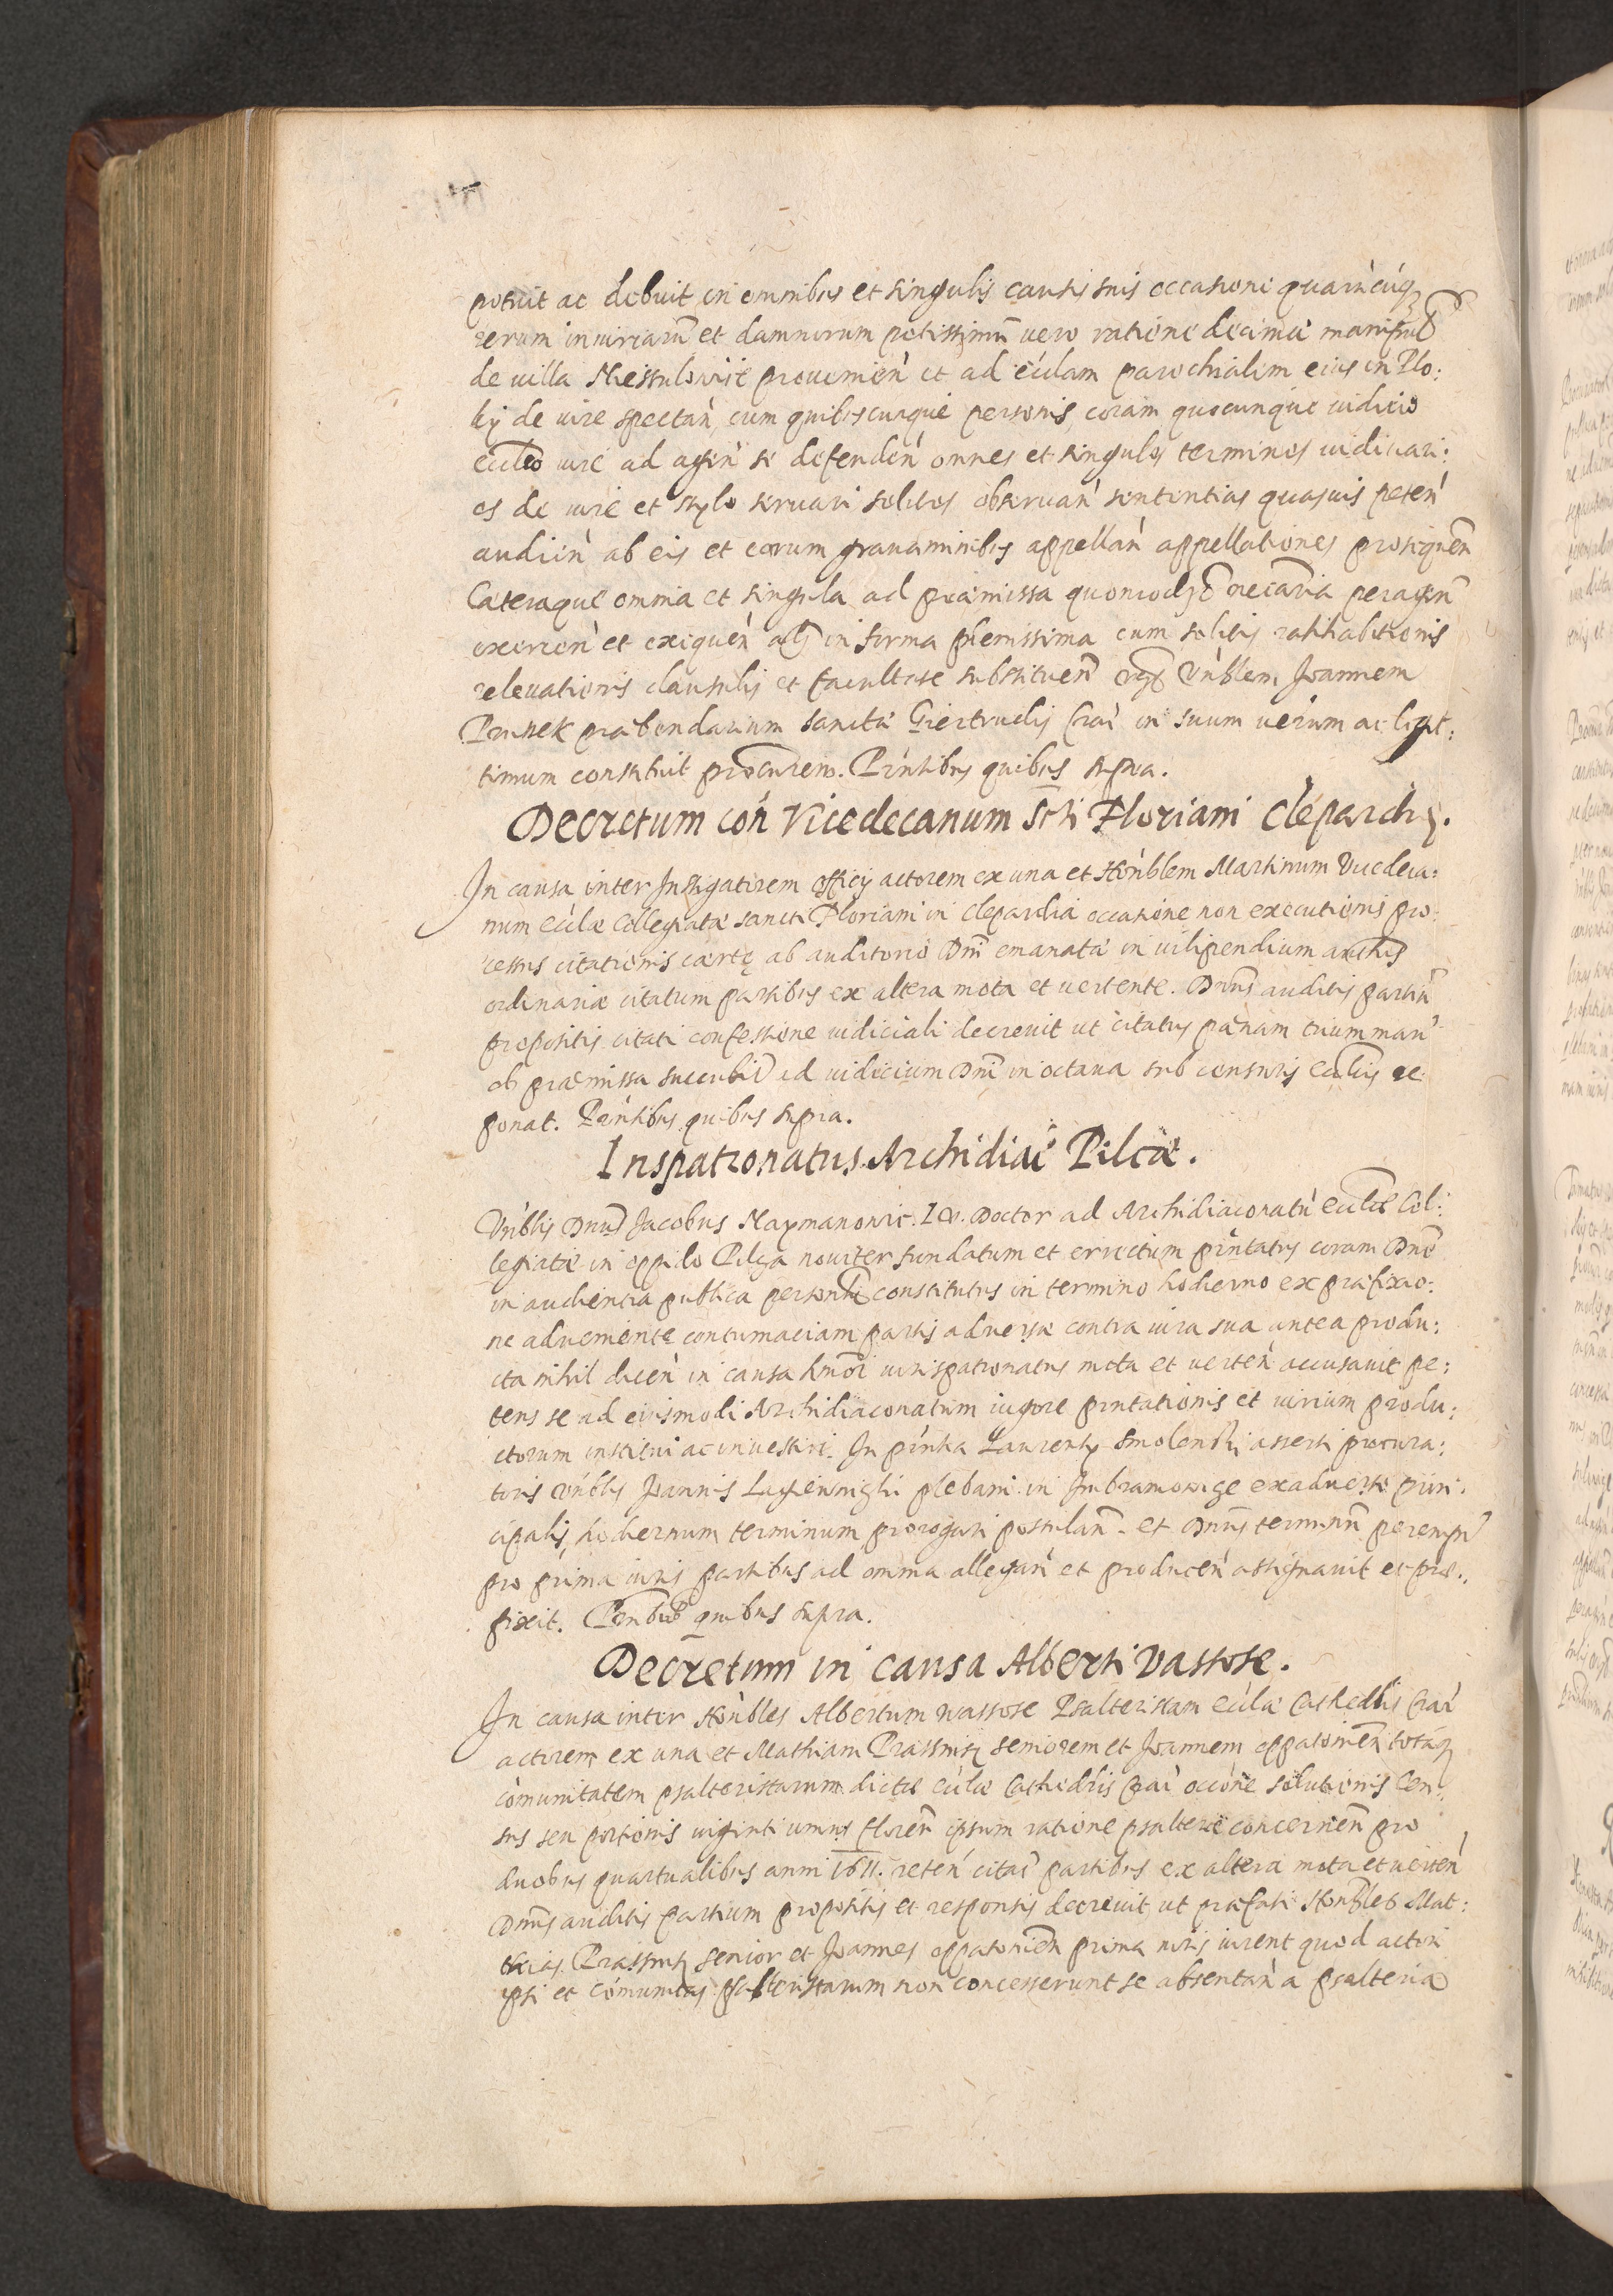 potuit ac debuit in omnibus et singulis causis suis occasione quarucuq
rerum iniuriaru et damnorum potissimu uero ratione decimae manipul
de uilla prouenien et ad eculam parochialem eius in Plo:
ky de iure spectan, cum quibuscunque personis, coram quocunque iudicio
eccleo iure ad agen se defenden omnes et singulos terminos iudiciari:
os de iure et stylo seruari solitos obseruan sententias quasuis peten
audien ab eis et eorum grauaminibus appellan appellationes prosequen
Caeteraque omnia et singula ad praemissa quomodolt necaria peragen
exercen et exequen in forma plenissima cum solitis ratihabitionis
releuationis clausulis et facultate substituen Vnblem Joannem
praebendarium sanctae Giertrudis Crac in suum uerum ac legit:
timum constituit procurem. Pntibus quibus supra.
Decretum con Vicedecanum Scti Floriani Clepardiae.
In causa inter Instigatorem officij actorem ex una et Honblem Martinum Vicedeca:
num Eculae Collegiatae sancti Floriani in Clepardia occasione non executionis pro:
cessus citationis certae ab auditorio Dni emanatae in uilipendium auctis
ordinariae citatum partibus ex altera mota et uertente. Dnus auditis partiu
propositis citati confessione iudiciali decreuit ut citatus paenam trium mar
ob praemissa succubit et ad iudicium Dni in octaua sub censuris ecclcis re:
ponat. Pntibus quibus supra.
Iuspatronatus Archidiac Pilcae.
Vnblis Dnus Jacobus Naymanowic. I.V. Doctor ad Archidiaconatu Ecclae Col:
legiatae in oppido Pilça nouiter fundatum et erectum pntatus coram Dno
in audientia publica personlr constitutus in termino hodierno ex praefixio:
ne adueniente contumaciam partis aduersae contra iura sua antea produ:
cta nihil dicen in causa hmoi iurispatronatus mota et uerten accusauit pe:
tens se ad eiusmodi Archidiaconatum uigore pntationis et iurium produ:
ctorum institui ac inuestiri. In pntia Laurentij Smolenski asserti procura:
toris Vnblis Joannis plebani in Imbramowice ex aduerso prin:
cipalis, hodiernum terminum prorogari postulan. et Dnus terminu peremp
pro prima iuris partibus ad omnia allegan et producen assignauit et prae:
fixit. Pntibus quibus supra.
Decretum in causa Alberti Vassose.
In causa inter Honbles Albertum Wassose Psalteristam Eculae Cathedlis Crac
actorem ex una et Mathiam seniorem et Joannem totaq
comunitatem psalteristarum dictae Eculae Cathedlis Crac occone solutionis Cen:
sus seu portionis uiginti unius floren ipsum ratione psalteriae concernen pro
duobus quartualibus anni 1611. reten citat partibus ex altera mota et uerten
Dnus auditis partium propositis et responsis decreuit ut praefati Honbles Mat:
thias senior et Joannes prima iuris iurent quod actori
ipsi et comunitas psalteristarum non concesserunt se absentan a psalteria